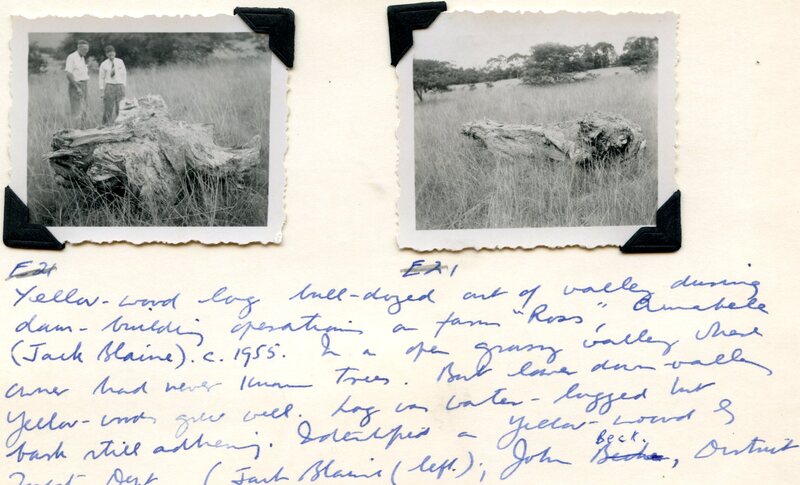 E21 E21
Yellow-wood log bull-dozed out of valley during
dam-building operations on farm "Ross", Amabele
(Jack Blaine). c. 1955. In a open grassy valley where
owner had never known trees. But lower down valley
Yellow-woods grew well. Log was water-logged but
bark still adhering. Identified as Yellow-wood by
Dept. (Jack Blaine (left.); John Beck, District